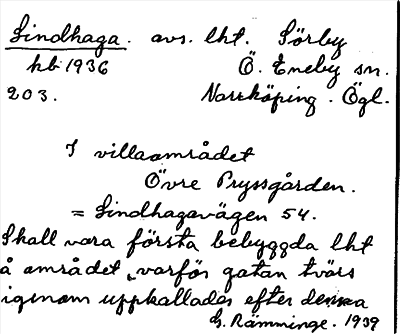 Lindhaga. avs. lht. Sörby
hb 1936 Ö. Eneby sn.
203. Norrköping. Ögl.
I villaområdet
Övre Pryssgården.
= Lindhagavägen 54.
Skall vara första bebyggda lht
å området, varför gatan tvärs
igenom uppkallades efter denna
G. Rämminge. 1939